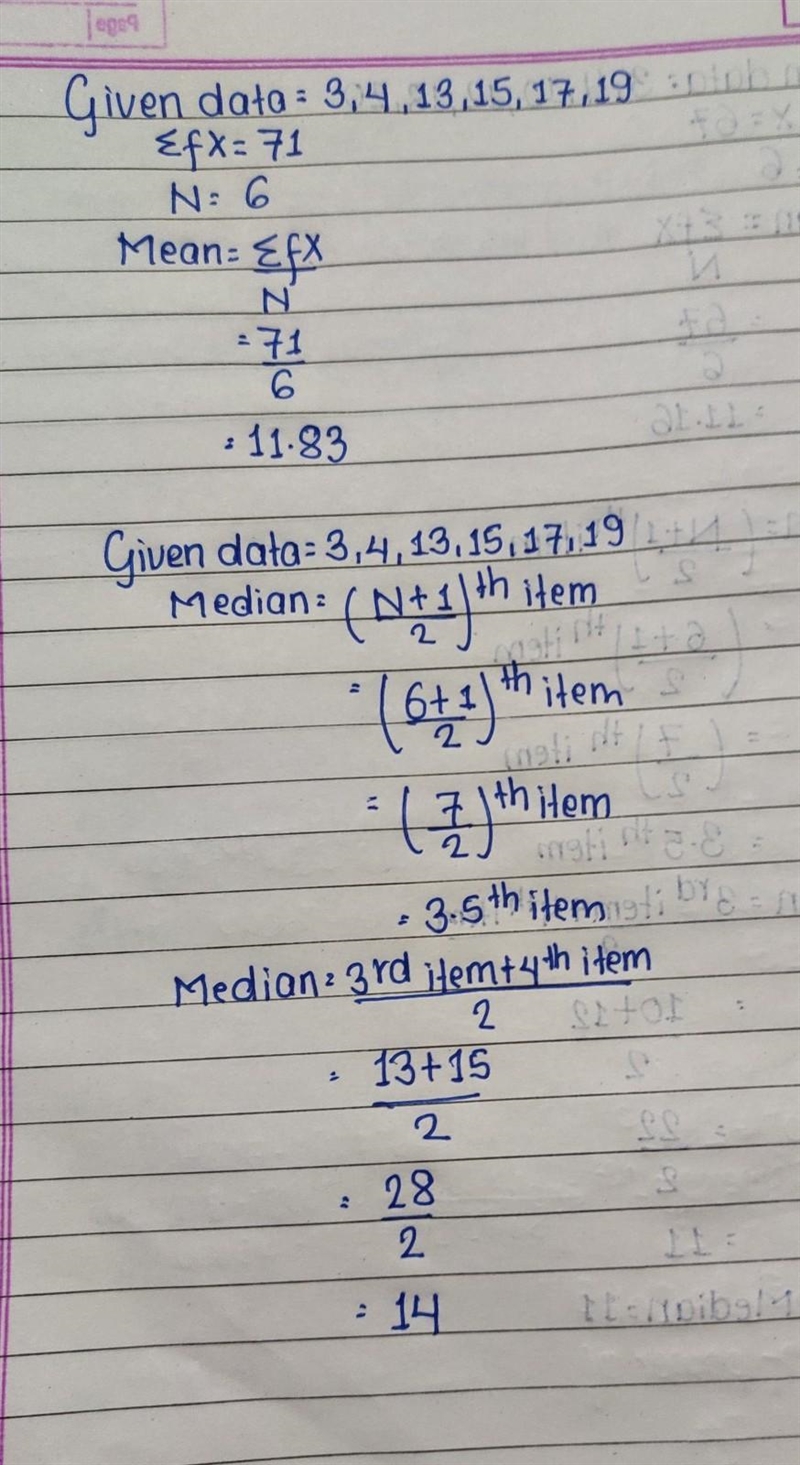 Page
Given data = 3, 4, 13, 15, 17, 19
Σfx = 71
N = 6
Mean = Σfx
N
= 71
6
= 11.83
Given data = 3, 4, 13, 15, 17, 19
Median = (N+1
2)th item
= (6+1
2)th item
= (7
2)th item
= 3.5th item
Median = 3rd item + 4th item
2
= 13+15
2
= 28
2
= 14